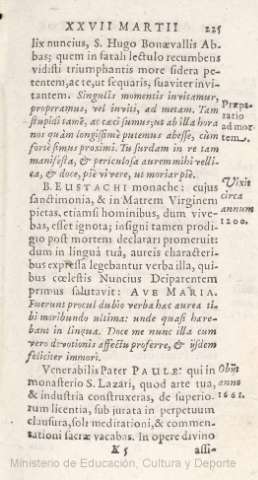 XXVII MARTII
225
lix nuncius, S. Hugo Bonævallis Ab-
bas; quem in fatali lectulo recumbens
vidisti triumphantis more sidera pe-
tentem, ac te, ut sequaris, suaviter invi-
tantem. Singulis momentis invitamur,
properamus, vel inviti, ad metam. Tam
stupidi tamẽ, ac tæci sumus; ut ab illa hora
nos quàm longissimè putemus abesse, cùm
fortè simus proximi. Tu surdam in re tam
manifesta, & periculosa aurem mihi velli-
ca, & doce, piè vivere, ut moriar piè.
Præpa-
ratio
ad mor-
tem.
B. EUSTACHI monache: cujus
sanctimonia, & in Matrem Virginem
pietas, etiamsi hominibus, dum vive-
bas, esset ignota; insigni tamen prodi-
gio post mortem declarari promeruit:
dum in lingua tuâ, aureis characteri-
bus expressa legebantur verba illa, qui-
bus cœlestis Nuncius Deiparentem
primus salutavit: AVE MARIA.
Fuerunt procul dubio verba hæc aurea ti-
bi moribundo ultima: unde quasi hære-
bant in lingua. Doce me nunc illa cum
vero devotionis affectu proferre, & ijsdem
feliciter immori.
Vixit
Circa
annum
1200.
Venerabilis Pater PAULÆ: qui in
monasterio S. Lazari, quod arte tua,
& industria construxeras, de superio-
rum licentia, sub jurata in perpetuum
clausura, solr meditationi, & commen-
tationi sacræ vacabas. In opere divino
Obijt
anno
1661.
K 5
assi-
Ministerio de Educación, Cultura y Deporte